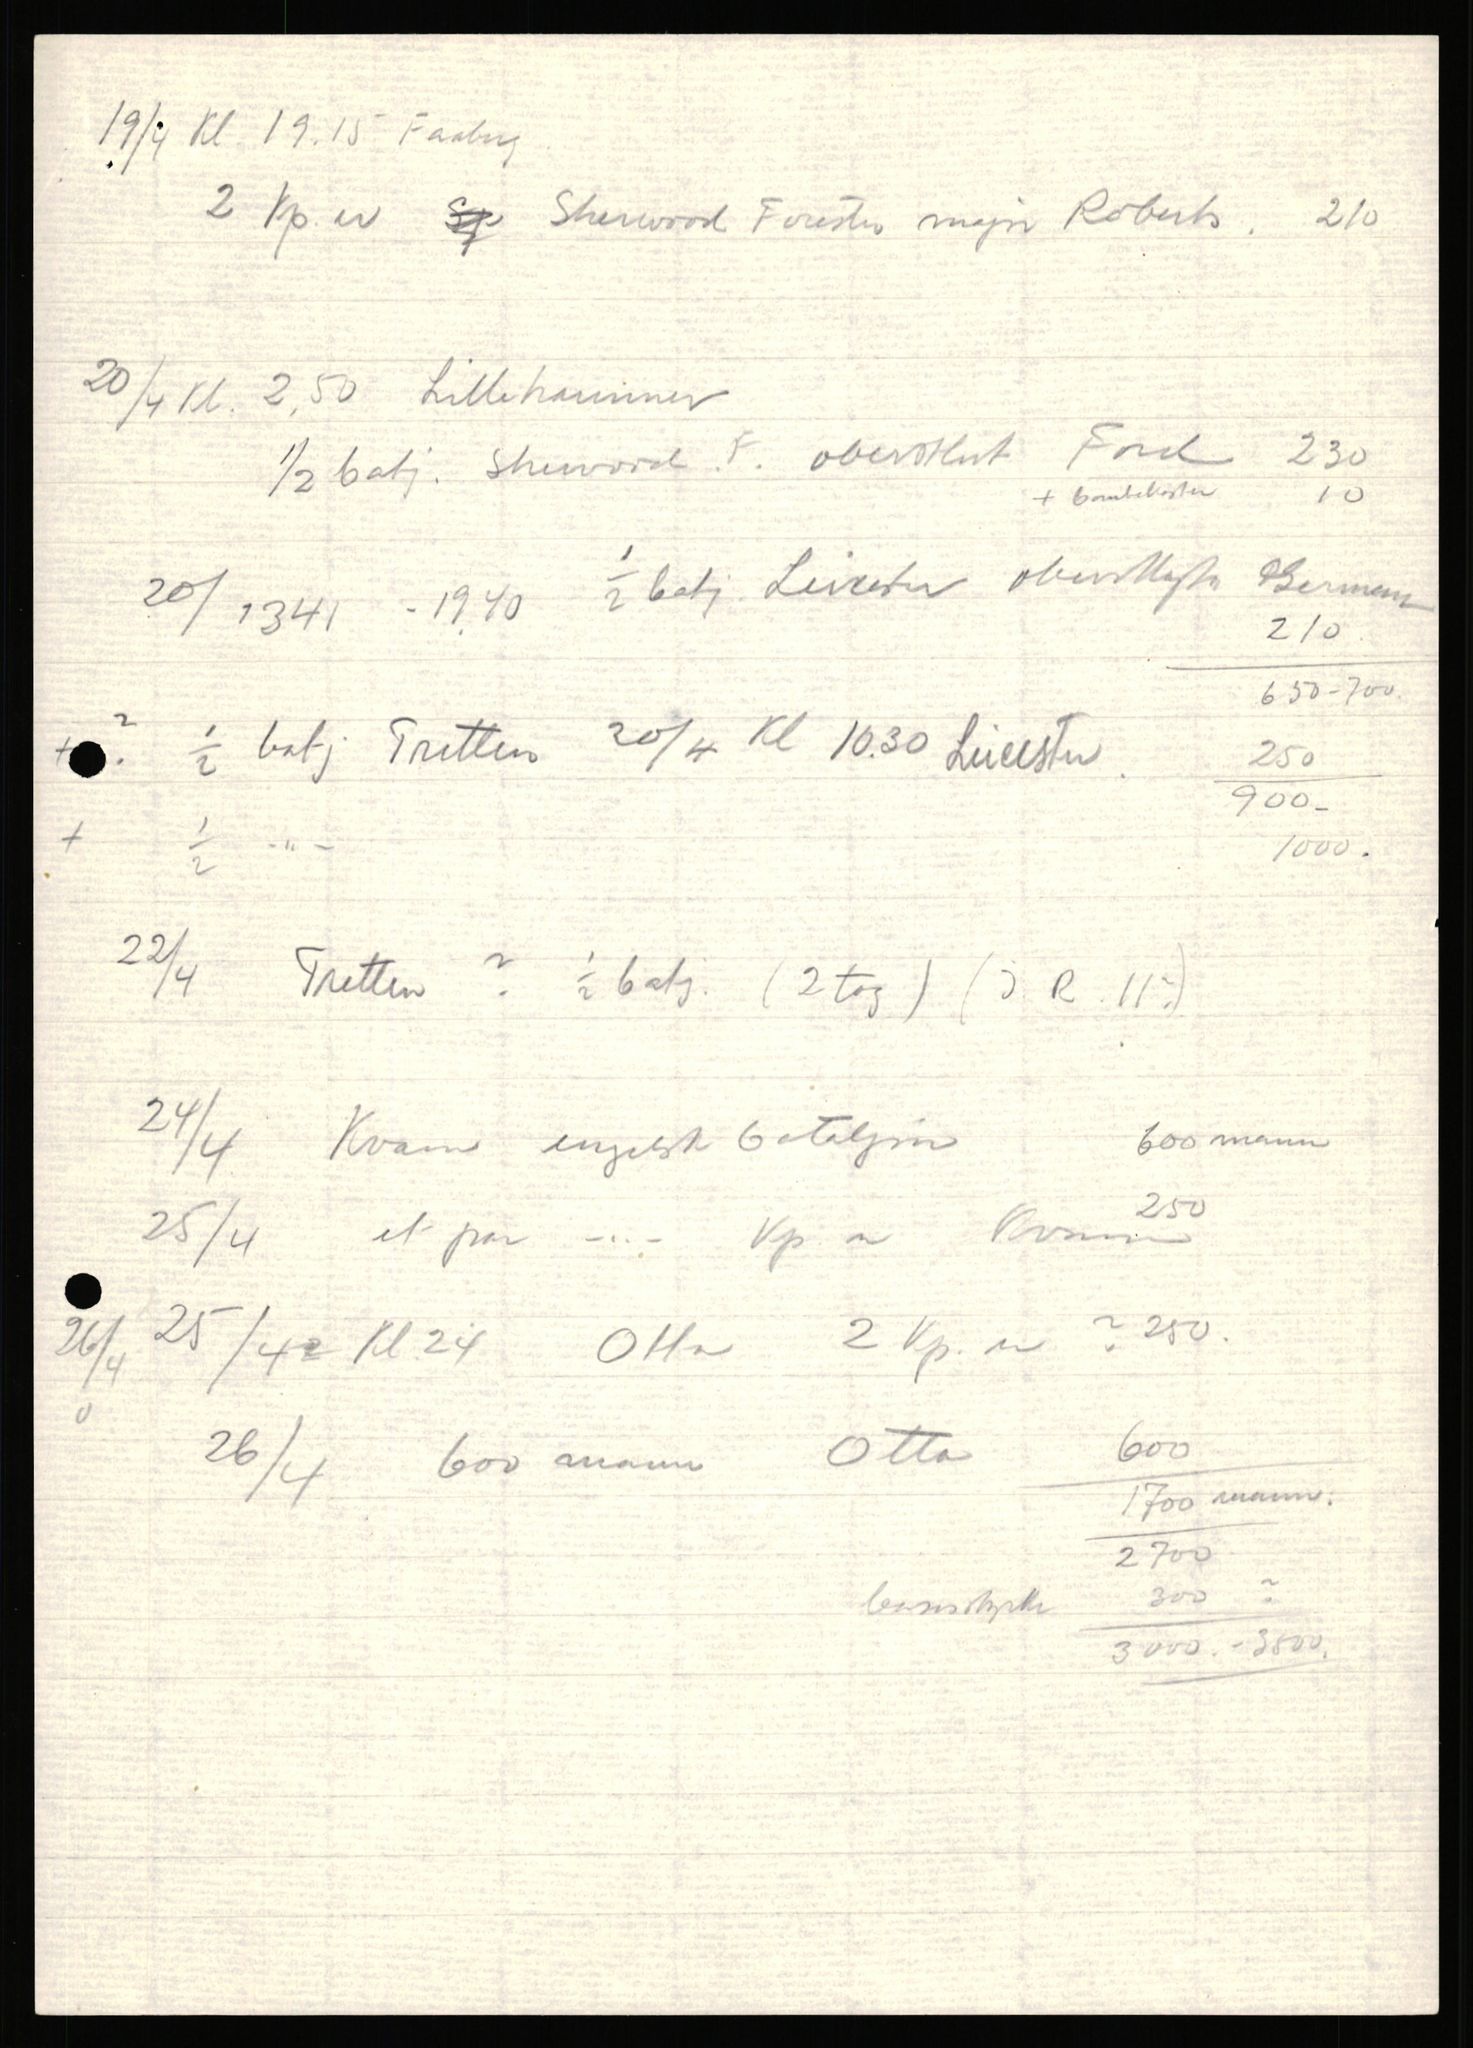 19/4 Kl. 19.15 Faaberg
2 Kp.er Sherwood Forester major Roberts. 210
20/4 Kl. 2,50 Lillehammer
1/2 batj. Sherwood F. oberstløt Ford 230
+ bombekaster 10
20/ 1341 - 19.40 1/2 batj. Leicester German
210.
650-700.
+ ? 1/2 batj Tretten 20/4 Kl 10.30 Leicester. 250
900-
+ 1/2 -"- 1000.
22/4 Tretten ? 1/2 batj. (2 tog) (J. R. 11?)
24/4 Kvam engelsk bataljon 600 mann
25/4 et par -"- Kp.er Kvam 250
26/4 25/4 Kl. 24 Otta 2 Kp.er ? 250.
26/4 600 mann Otta 600
1700 mann.
2700
basisstyrke 300 ?
3000. - 3500.